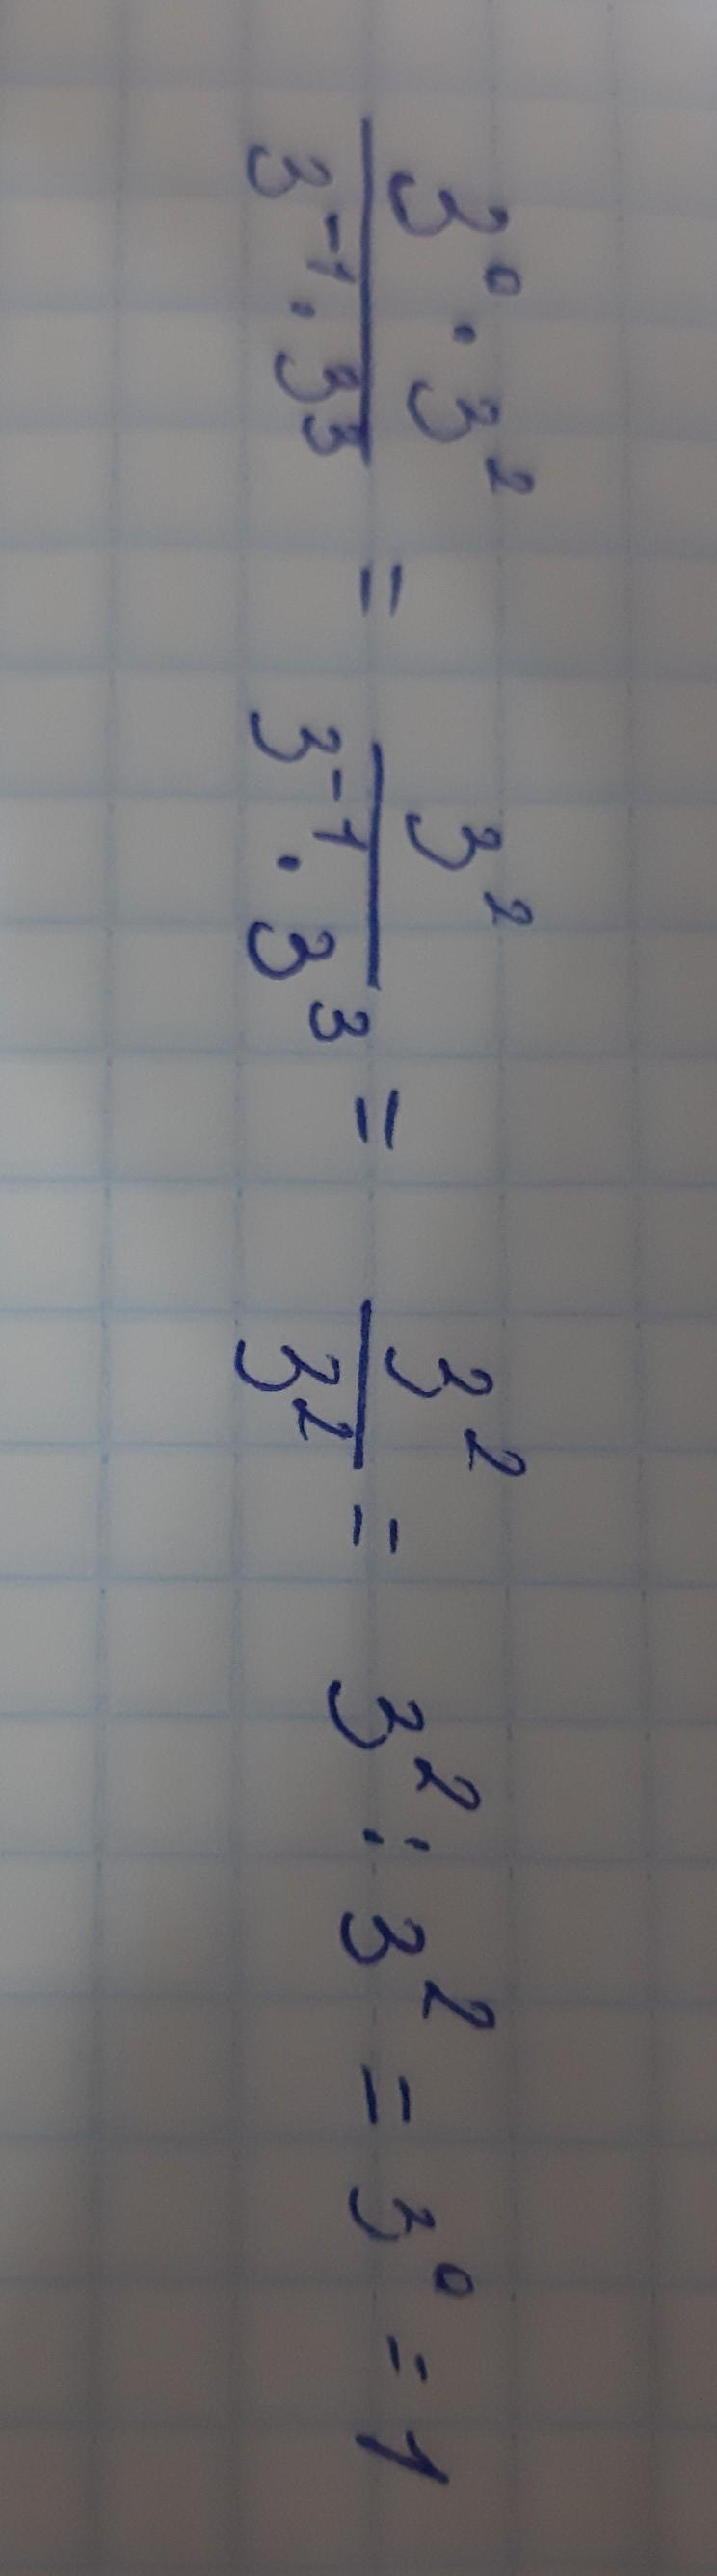 \frac{3^0 \cdot 3^2}{3^{-1} \cdot 3^3} = \frac{3^2}{3^{-1} \cdot 3^3} = \frac{3^2}{3^2} = 3^2 : 3^2 = 3^0 = 1